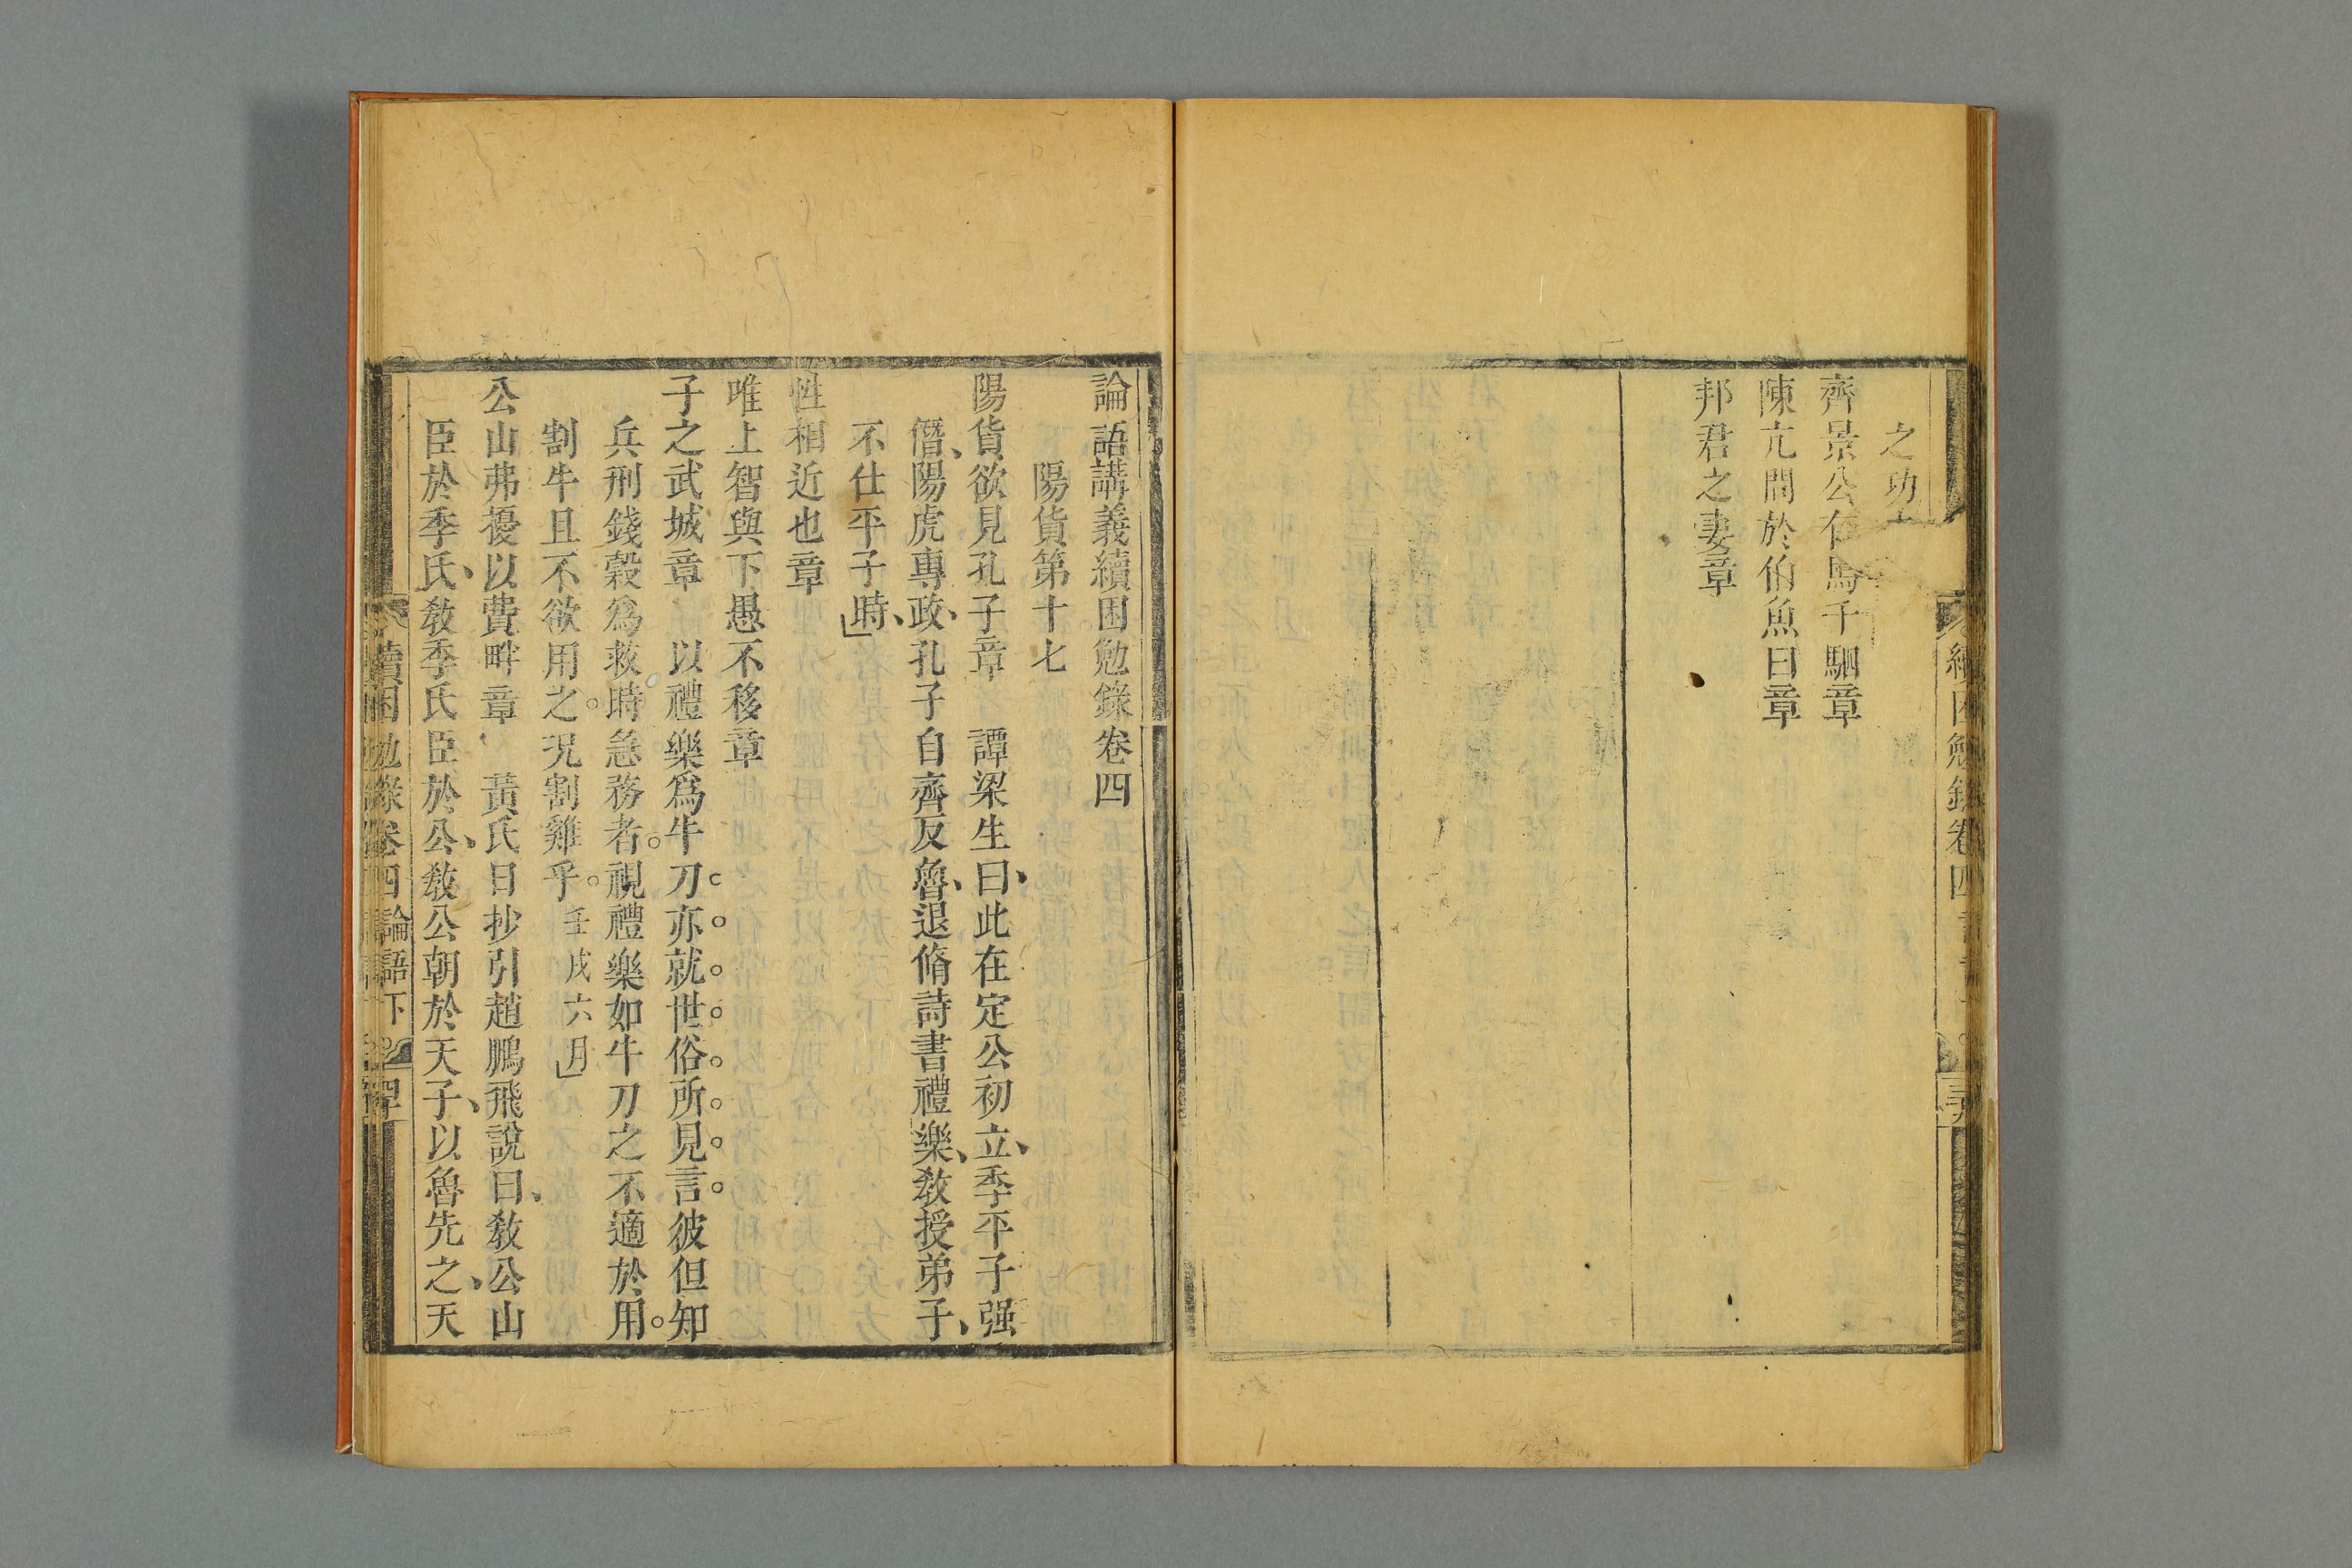 之功
齊景公有馬千駟章
陳亢問於伯魚曰章
邦君之妻章
論語講義續困勉錄卷四
陽貨第十七
陽貨欲見孔子章　譚梁生曰、此在定公初立、季平子强
僭、陽虎專政、孔子自齊反魯、退脩詩書禮樂、敎授弟子、
不仕平子時、」
性相近也章
唯上智與下愚不移章
子之武城章　以禮樂爲牛刀。亦。就。世。俗。所。見。言。彼但知
兵刑錢穀爲救時急務者。視禮樂如牛刀之不適於用。
割牛且不欲用之。况割雞乎。壬戌六月」
公山弗擾以費畔章　黃氏日抄引趙鵬飛說曰、敎公山
臣於季氏、敎季氏臣於公、敎公朝於天子、以魯先之、天
續困勉錄卷四論語下